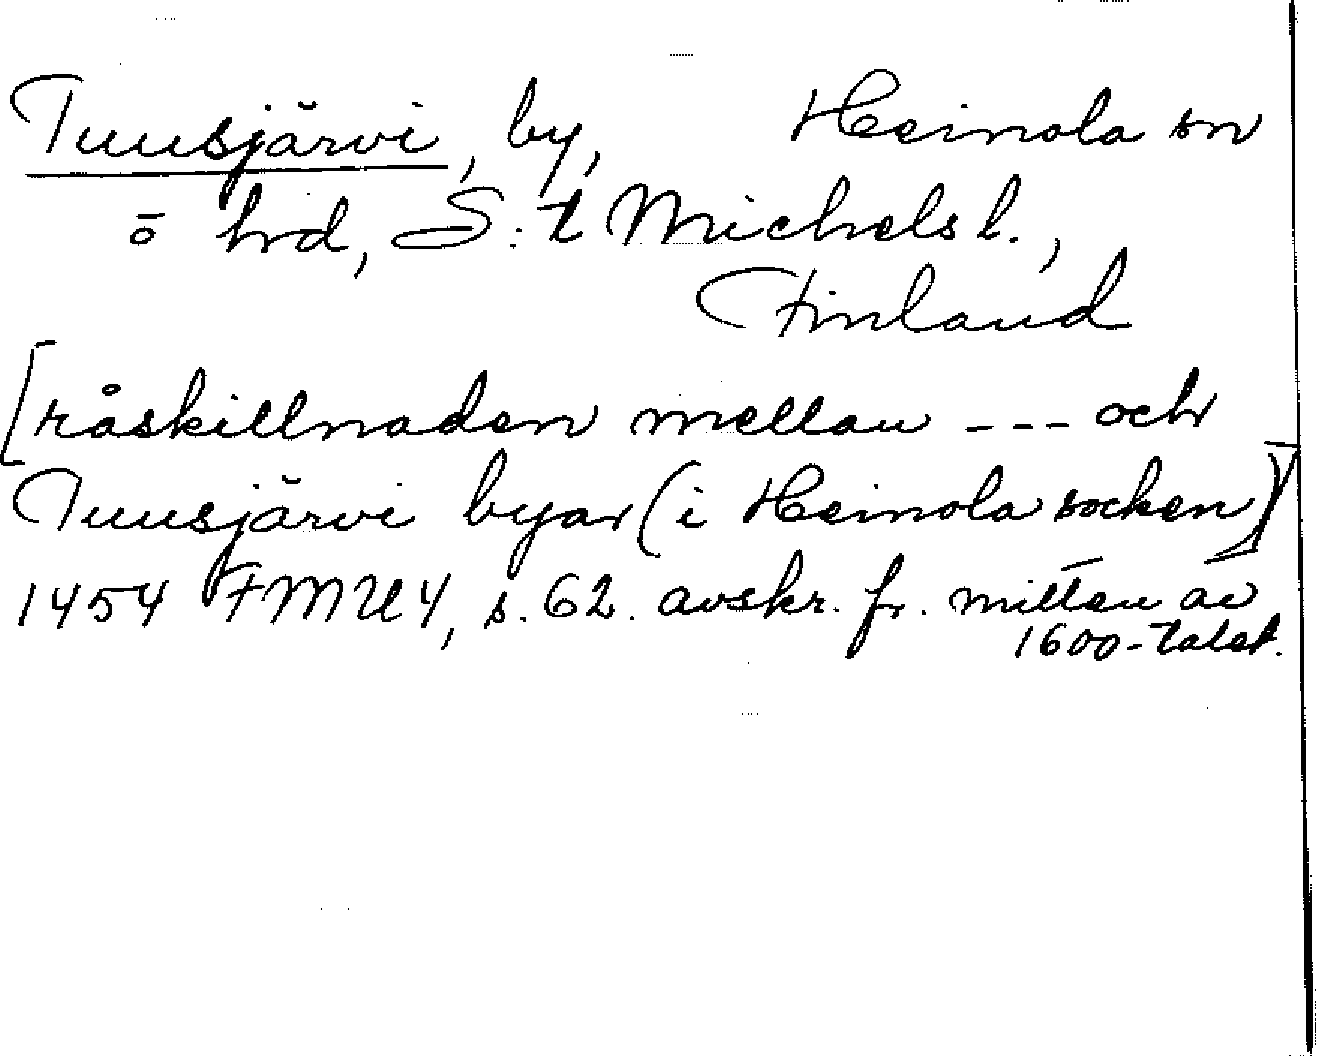 Tuusjärvi, by, Heinola sn
o hrd, S:t Michels l.,
Finland
[råskillnaden mellan --- och
Tuusjärvi byar (i Heinola socken)]
1454 FMU 4, s. 62. avskr. fr. mitten av
1600-talet.